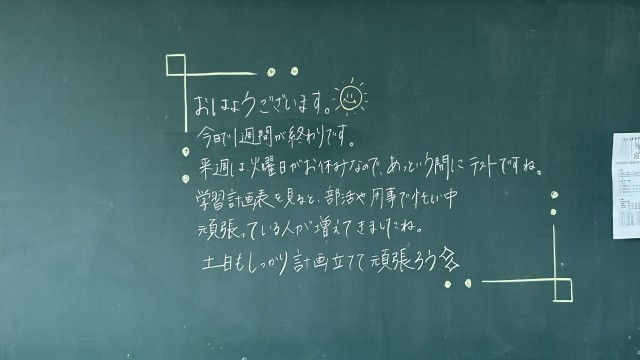 おはようございます。
今日で1週間が終わりです。
来週は火曜日がお休みなので、あっという間にテストですね。
学習計画表を見ると、部活や用事で忙しい中
頑張っている人が増えてきましたね。
土日もしっかり計画立てて頑張ろう